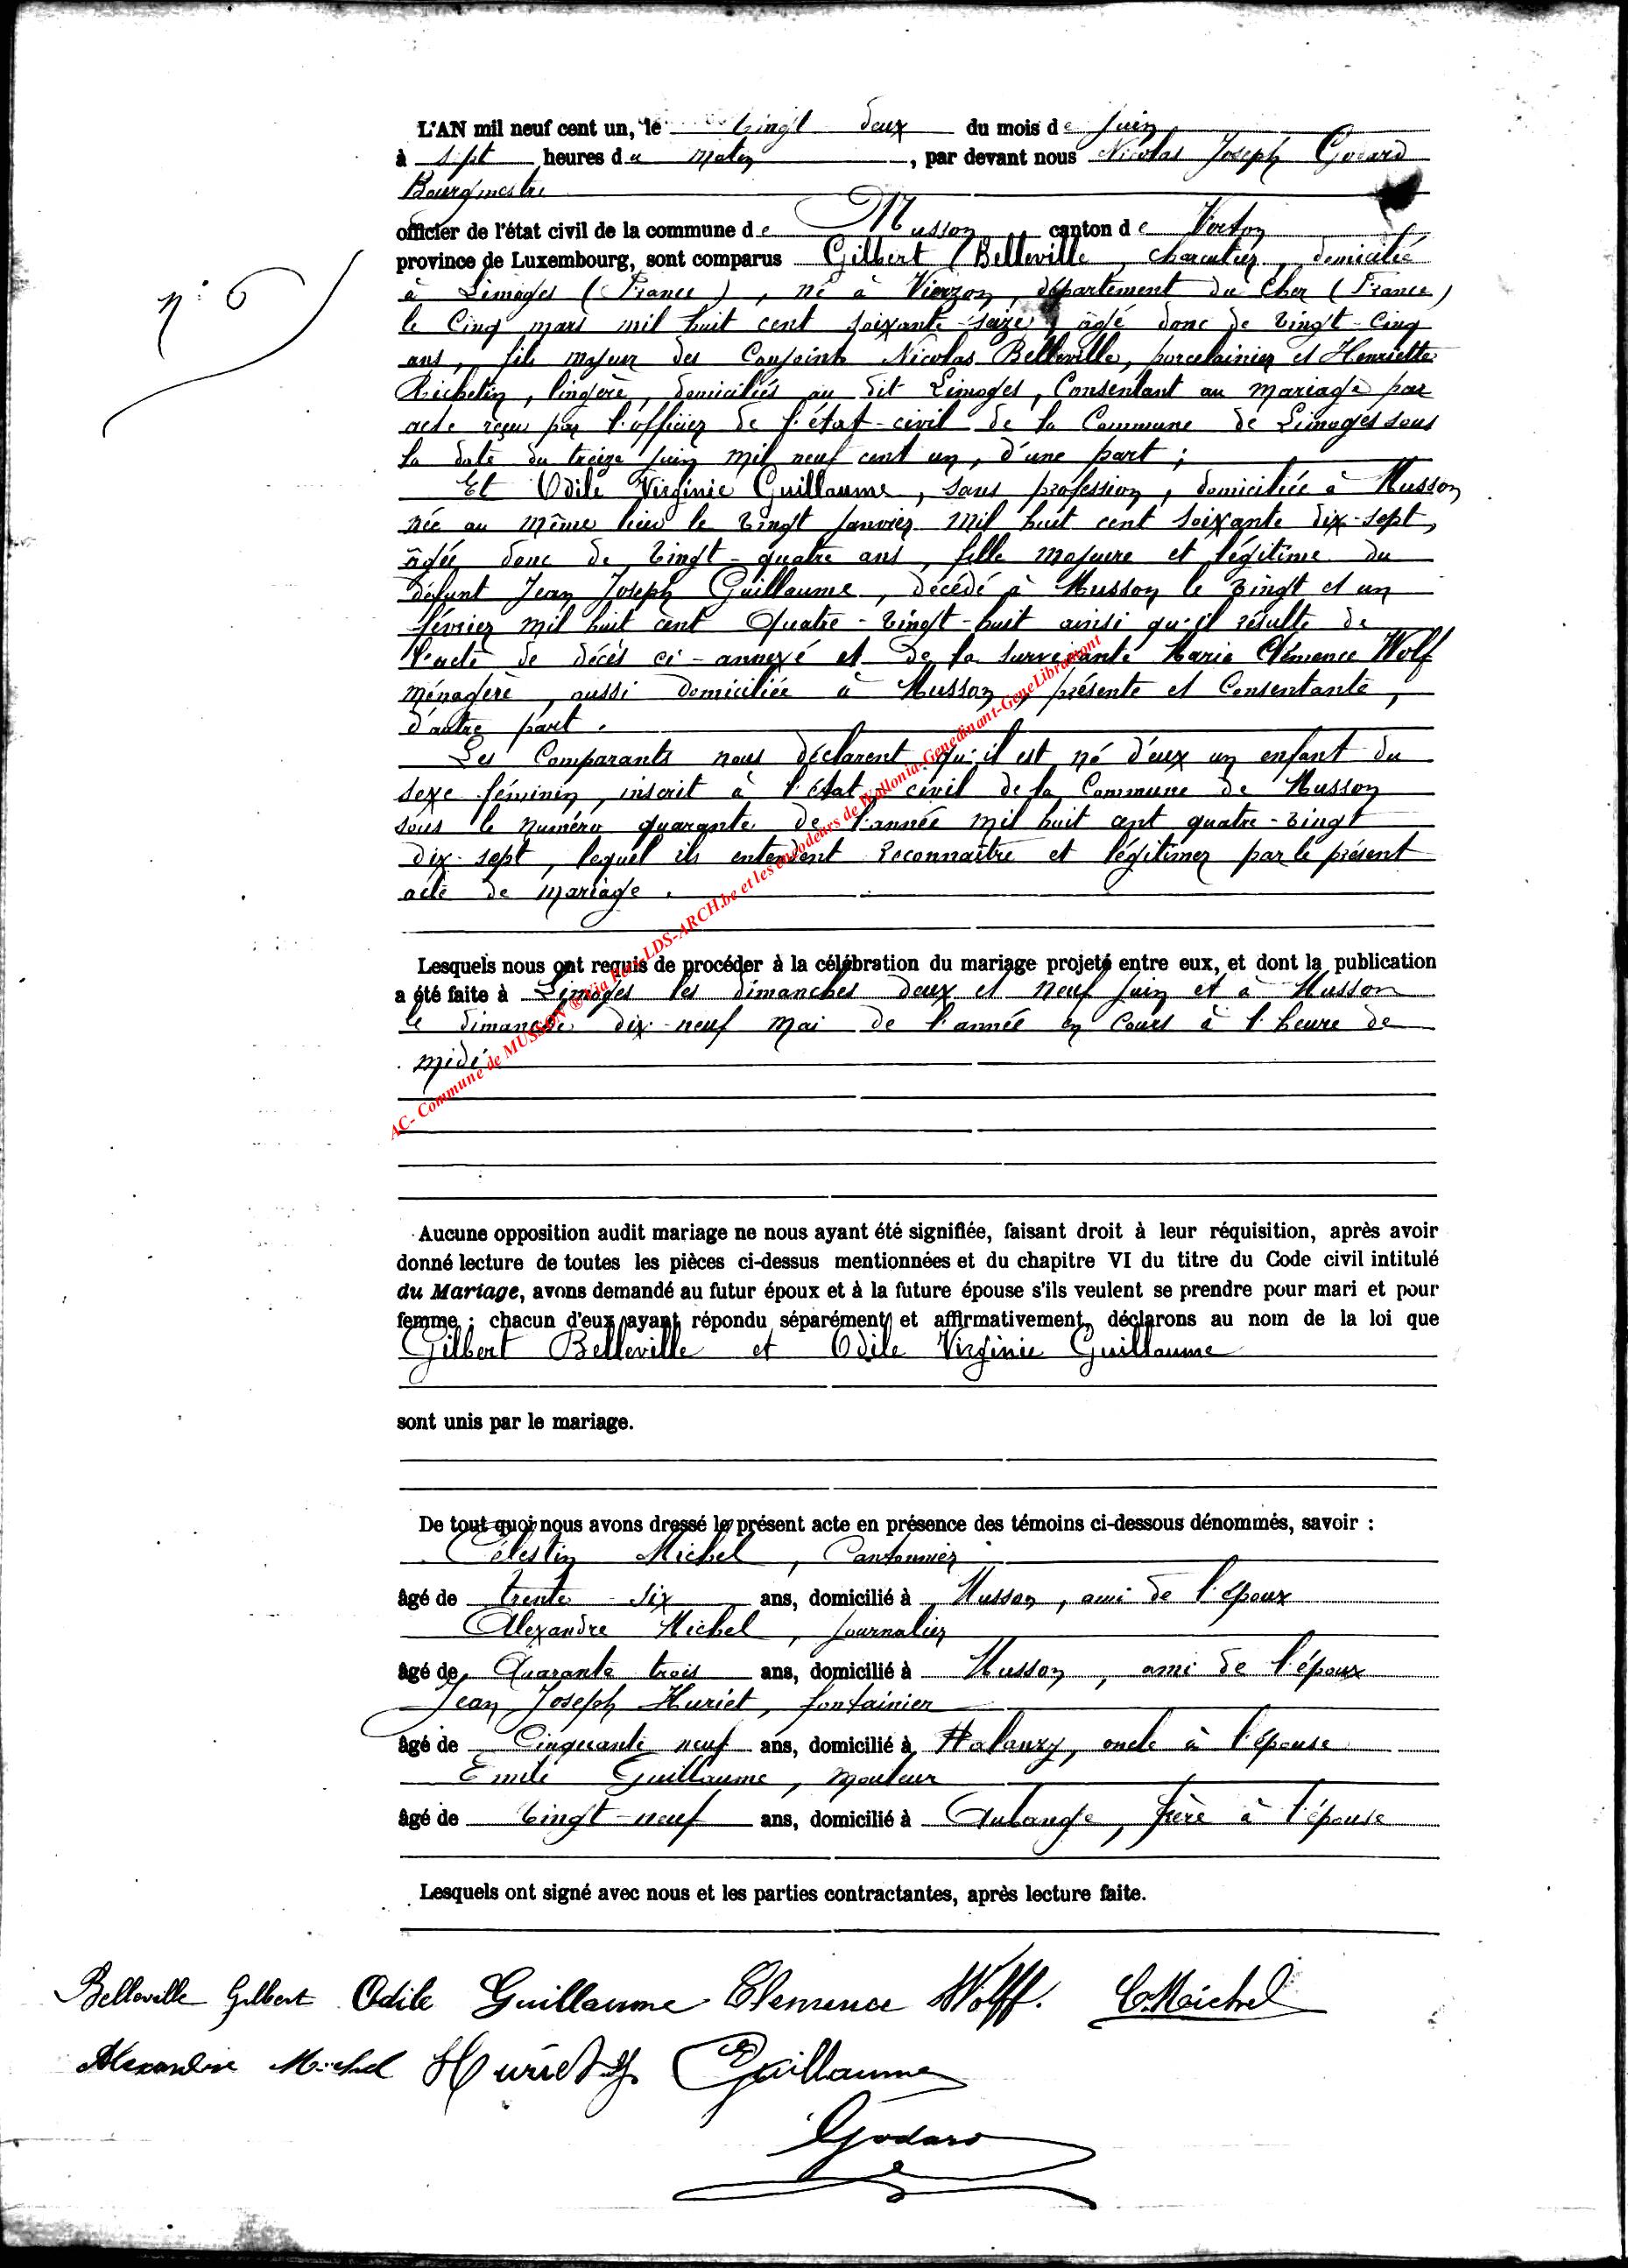 L'AN mil neuf cent un, le vingt deux du mois de Juin
à sept heures du matin, par devant nous Nicolas Joseph Godard
Bourgmestre
officier de l'état civil de la commune de Musson canton de Virton
province de Luxembourg, sont comparus Gilbert Belleville, charcutier, domicilié
n° 6
à Limoges (France), né à Vierzon, département du Cher (France)
le Cinq mars mil huit cent soixante-seize, âgé donc de vingt-Cinq
ans, fils majeur des Conjoints Nicolas Belleville, porcelainier et Henriette
Richelin, lingère, domiciliés au dit Limoges, Consentant au mariage par
acte reçu par l'officier de l'état-civil de la Commune de Limoges sous
la date du treize juin mil neuf cent un, d'une part ;
Et Odile Virginie Guillaume, sans profession, domiciliée à Musson
née au même lieu le vingt janvier mil huit cent soixante dix-sept,
âgée donc de vingt-quatre ans, fille majeure et légitime du
défunt Jean Joseph Guillaume, décédé à Musson le vingt et un
février mil huit cent quatre-vingt-huit ainsi qu'il résulte de
l'acte de décès ci-annexé et de la survivante Marie Clémence Wolf
ménagère, aussi domiciliée à Musson, présente et Consentante,
d'autre part.
Les Comparants nous déclarent qu'il est né d'eux un enfant du
sexe féminin, inscrit à l'état civil de la Commune de Musson
sous le numéro quarante de l'année mil huit cent quatre-vingt
dix-sept, lequel ils entendent reconnaître et légitimer par le présent
acte de mariage.
AC- Commune de MUSSON ® Via Familde LDS-ARCH.be et les encodeurs de Wallonia-Genedinant-GeneLibramont
Lesquels nous ont requis de procéder à la célébration du mariage projeté entre eux, et dont la publication
a été faite à Limoges les dimanches deux et neuf juin et à Musson
le dimanche dix-neuf mai de l'année en Cours à l'heure de
midi
Aucune opposition audit mariage ne nous ayant été signifiée, faisant droit à leur réquisition, après avoir
donné lecture de toutes les pièces ci-dessus mentionnées et du chapitre VI du titre du Code civil intitulé
du Mariage, avons demandé au futur époux et à la future épouse s'ils veulent se prendre pour mari et pour
femme ; chacun d'eux ayant répondu séparément et affirmativement, déclarons au nom de la loi que
Gilbert Belleville et Odile Virginie Guillaume
sont unis par le mariage.
De tout quoi nous avons dressé le présent acte en présence des témoins ci-dessous dénommés, savoir :
Célestin Michel, Cantonnier
âgé de trente-six ans, domicilié à Musson, ami de l'époux
Alexandre Michel, journalier
âgé de Quarante trois ans, domicilié à Musson, ami de l'époux
Jean Joseph Huriet, fontainier
âgé de Cinquante neuf ans, domicilié à Halanzy, oncle à l'épouse
Emile Guillaume, mouleur
âgé de vingt-neuf ans, domicilié à Aubange, frère à l'épouse
Lesquels ont signé avec nous et les parties contractantes, après lecture faite.
Belleville Gilbert Odile Guillaume Clemence Wolff. C. Michel
Alexandre Michel Huriet JJ. E Guillaume
Godard